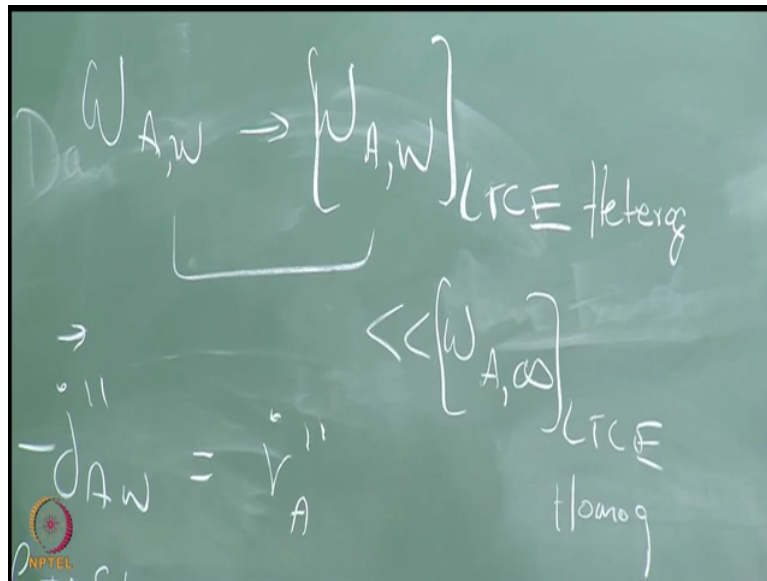 ω_{A,w} → [ω_{A,w}]_{LTCE Heterog}
→ << [ω_{A,∞}]_{LTCE Homog}
-j̇''_{A w} = ṙ''_A
NPTEL